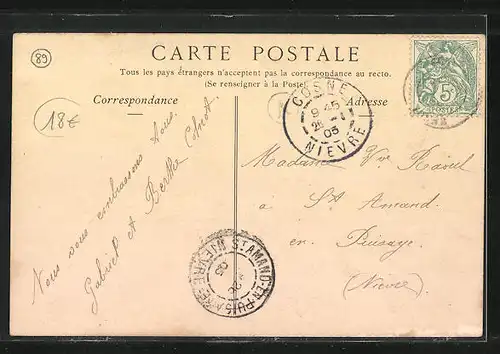 89
CARTE POSTALE
Tous les pays étrangers n'acceptent pas la correspondance au recto.
(Se renseigner à la Poste)
Correspondance
Adresse
18€
COSNE
9 45
25 -1
05
NIEVRE
5
Madame Vve Raoul
à St Amand
en Puisaye
(Nièvre)
Nous vous embrassons tous.
Gabriel et Berthe
ST AMAND-EN-PUISAYE
NIEVRE
05